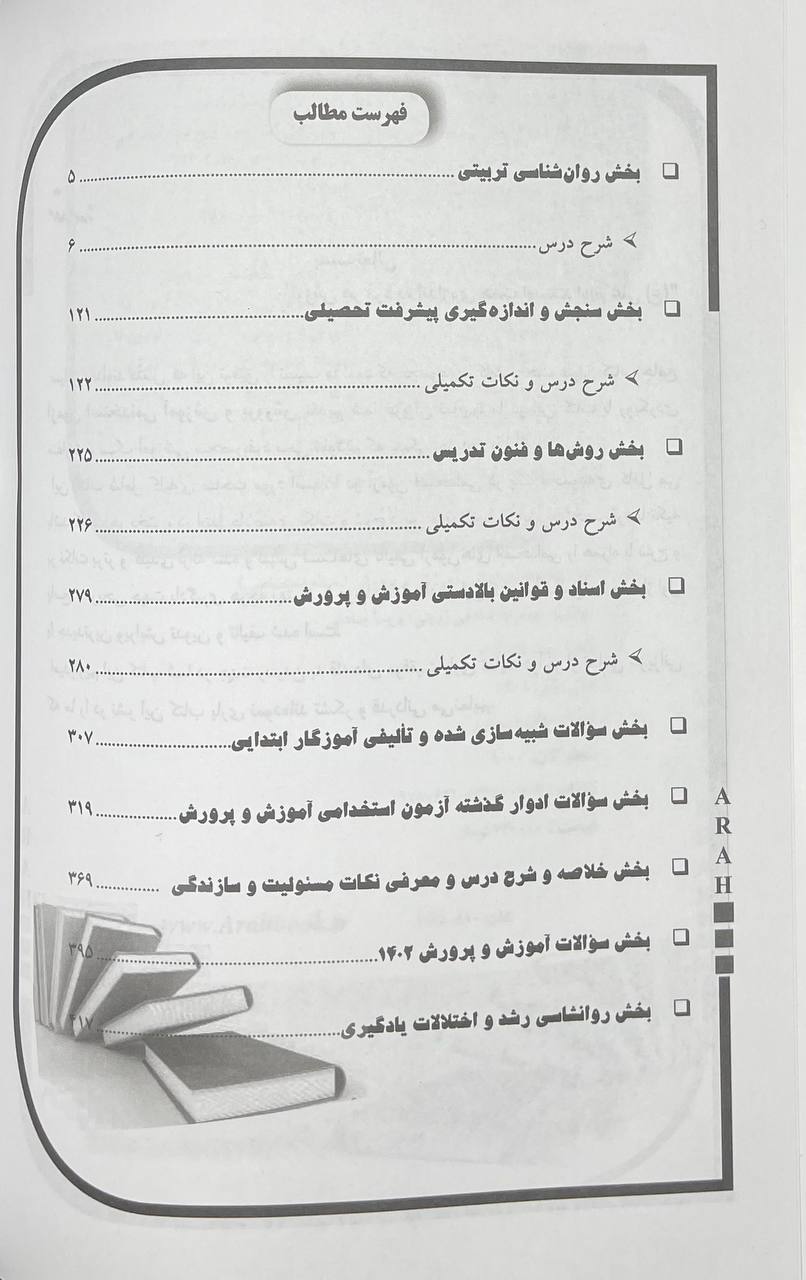 فهرست مطالب
❑ بخش روان‌شناسی تربیتی ۵
شرح درس ۶
❑ بخش سنجش و اندازه‌گیری پیشرفت تحصیلی ۱۲۱
شرح درس و نکات تکمیلی ۱۲۲
❑ بخش روش‌ها و فنون تدریس ۲۲۵
شرح درس و نکات تکمیلی ۲۲۶
❑ بخش اسناد و قوانین بالادستی آموزش و پرورش ۲۷۹
شرح درس و نکات تکمیلی ۲۸۰
❑ بخش سؤالات شبیه‌سازی شده و تألیفی آموزگار ابتدایی ۳۰۷
❑ بخش سؤالات ادوار گذشته آزمون استخدامی آموزش و پرورش ۳۱۹
❑ بخش خلاصه و شرح درس و معرفی نکات مسئولیت و سازندگی ۳۶۹
❑ بخش سؤالات آموزش و پرورش ۱۴۰۲ ۳۹۵
❑ بخش روانشاسی رشد و اختلالات یادگیری ۴۱۷
A
R
A
H